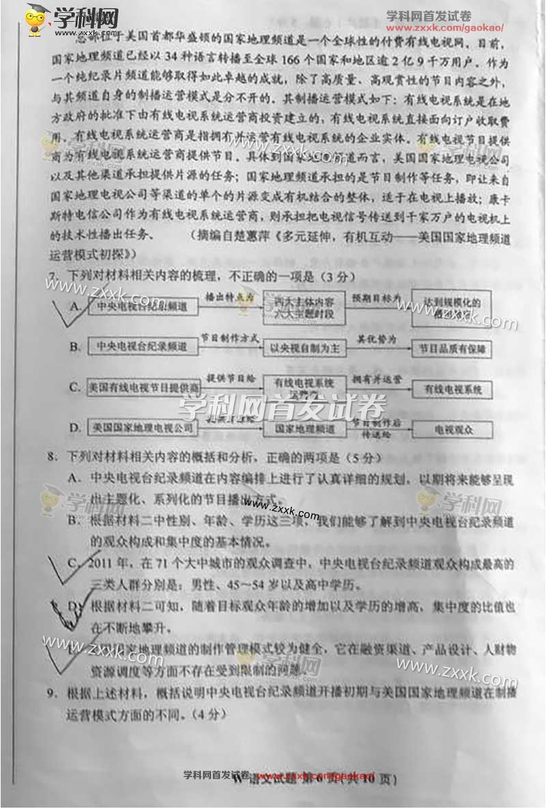 学科网
www.zxxk.com
学科网首发试卷
www.zxxk.com/gaokao/
总部位于美国首都华盛顿的国家地理频道是一个全球性的付费有线电视网。目前,
国家地理频道已经以 34 种语言转播至全球 166 个国家和地区逾 2 亿 9 千万用户。作为
一个纯纪录片频道能够取得如此卓越的成就,除了高质量、高观赏性的节目内容之外,
与其频道自身的制播运营模式是分不开的。其制播运营模式如下:有线电视系统是在地
方政府的批准下由有线电视系统运营商投资建立的,有线电视系统直接面向订户收取费
用。有线电视系统运营商是指拥有并运营有线电视系统的企业实体。有线电视节目提供
商为有线电视系统运营商提供节目。具体到国家地理频道而言,美国国家地理电视公司
以及其他渠道承担提供片源的任务;国家地理频道承担的是节目制作等任务,即让来自
国家地理电视公司等渠道的单个的片源变成有机结合的整体,适于在电视上播放;康卡
斯特电信公司作为有线电视系统运营商,则承担把电视信号传送到千家万户的电视机上
的技术性播出任务。 (摘编自楚蕙萍《多元延伸,有机互动——美国国家地理频道
运营模式初探》)
7. 下列对材料相关内容的梳理,不正确的一项是(3 分)
A. 中央电视台纪录频道 播出特点为 四大主体内容 六大主题时段 预期目标为 达到规模化的
B. 中央电视台纪录频道 节目制作方式 以央视自制为主 其优势为 节目品质有保障
C. 美国有线电视节目提供商 提供节目给 有线电视系统 运营商 拥有并运营 有线电视系统
学科网首发试卷
D. 美国国家地理电视公司 国家地理频道 节目制作后 传送给 电视观众
8. 下列对材料相关内容的概括和分析,正确的两项是(5 分)
A. 中央电视台纪录频道在内容编排上进行了认真详细的规划,以期将来能够呈现
出主题化、系列化的节目播出方式。
B. 根据材料二中性别、年龄、学历这三项,我们能够了解到中央电视台纪录频道
的观众构成和集中度的基本情况。
C. 2011 年,在 71 个大中城市的观众调查中,中央电视台纪录频道观众构成最高的
三类人群分别是:男性、45~54 岁以及高中学历。
D. 根据材料二可知,随着目标观众年龄的增加以及学历的增高,集中度的比值也
在不断地攀升。
国家地理频道的制作管理模式较为健全,它在融资渠道、产品设计、人财物
资源调度等方面不存在受到限制的问题。
9. 根据上述材料,概括说明中央电视台纪录频道开播初期与美国国家地理频道在制播
运营模式方面的不同。(4 分)
学科网首发试卷 www.zxxk.com/gaokao/
W 语文试题 第 6 页(共 10 页)